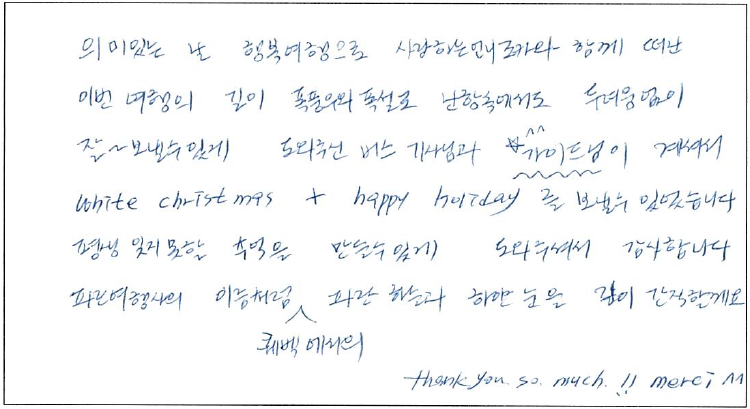 의미있는 날 행복여행으로 사랑하는언니조카와 함께 떠난
이번 여행의 길이 폭풍우와 폭설로 난항속에서도 두려움없이
잘~보낼수있게 도와주신 버스 기사님과 ☆가이드님^^이 계셔서
white christmas + happy holiday 를 보낼수 있었습니다
평생 잊지못할 추억을 만들수있게 도와주셔서 감사합니다
파란여행사의 이름처럼 파란 하늘과 하얀 눈을 깊이 간직할께요
퀘벡에서의
thank you. so. much. !! merci ^^